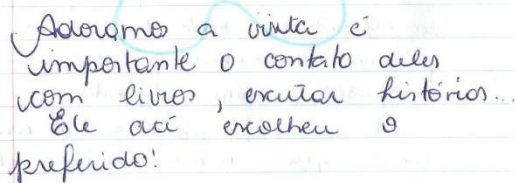 Adoramos a visita é
importante o contato deles
com livros, escutar histórias...
Ele aci escolheu o
preferido!